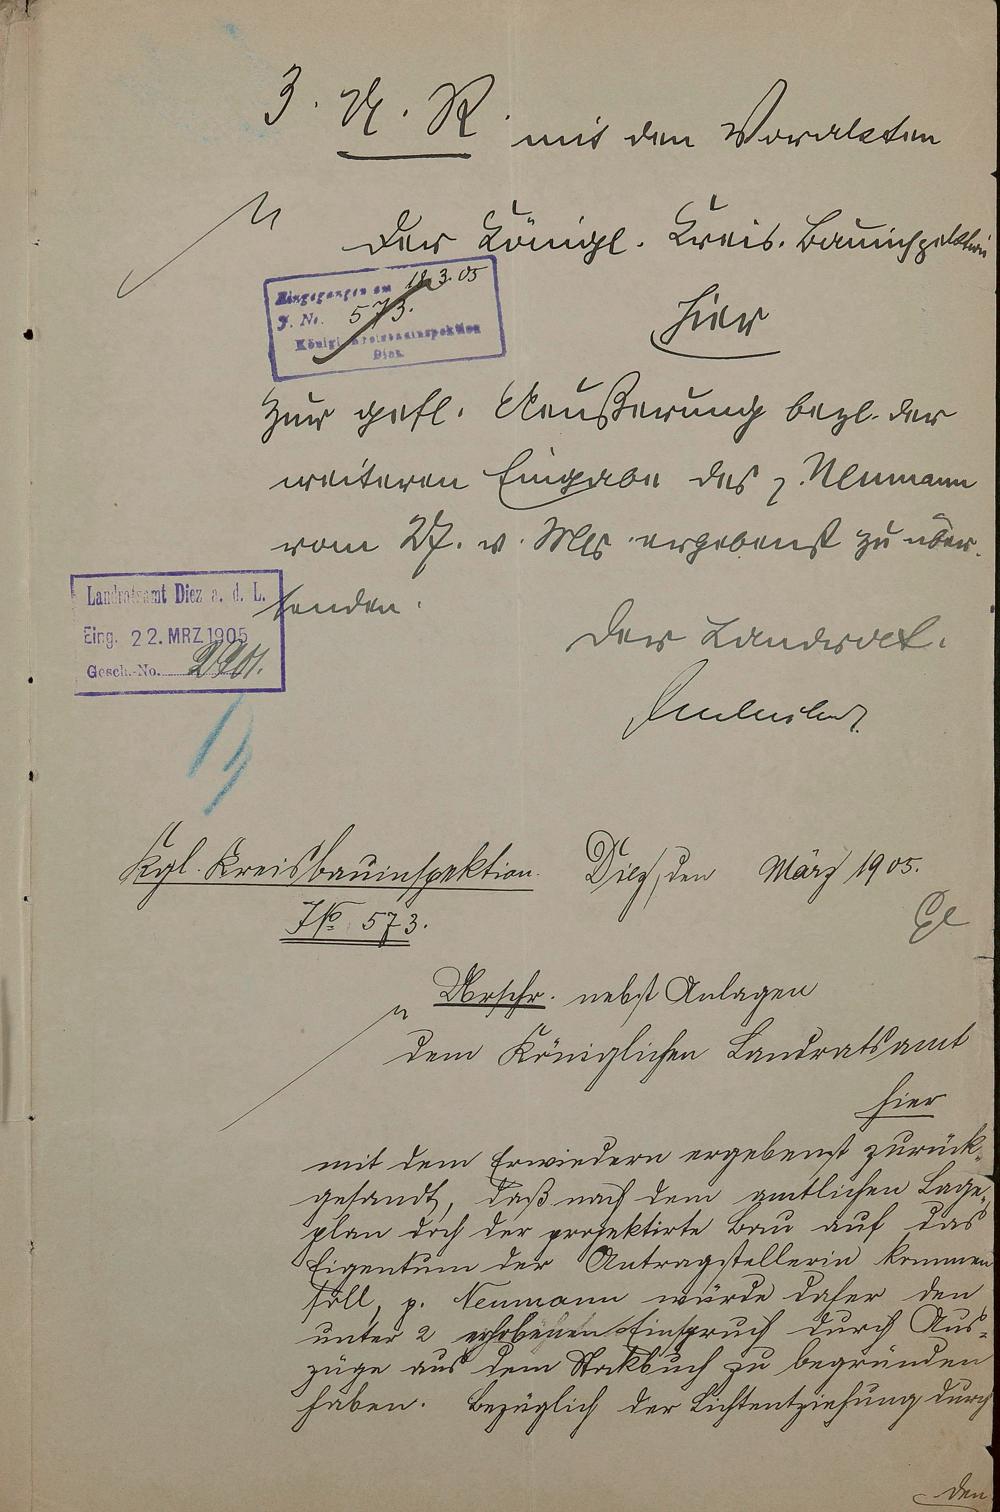 3. U. R. mit den Vorakten
der Königl. Kreis. Bauinspektion
hier
Eingegangen am 18.3.05
J. No. 573.
Königl. Kreisbauinspektion
Diez
zur gefl. Aeußerung bezl. der
weiteren Eingabe des p. Neumann
vom 27. v. Mts ergebenst zu über-
senden.
Landratsamt Diez a. d. L.
Eing. 22. MRZ. 1905
Gesch.-No.
Der Landrat.
Kgl. Kreisbauinspektion. Diez, den März 1905.
J№ 573.
Urschr. nebst Anlagen
dem Königlichen Landratsamt
hier
mit dem Erwiedern ergebenst zurück-
gesandt, daß nach dem amtlichen Lage-
plan doch der projektirte Bau auf das
Eigentum der Antragstellerin kommen
soll, p. Neumann würde daher den
unter 2 erhobenen Einspruch durch Aus-
züge aus dem Stockbuch zu begründen
haben. Bezüglich der Lichtentziehung durch
den